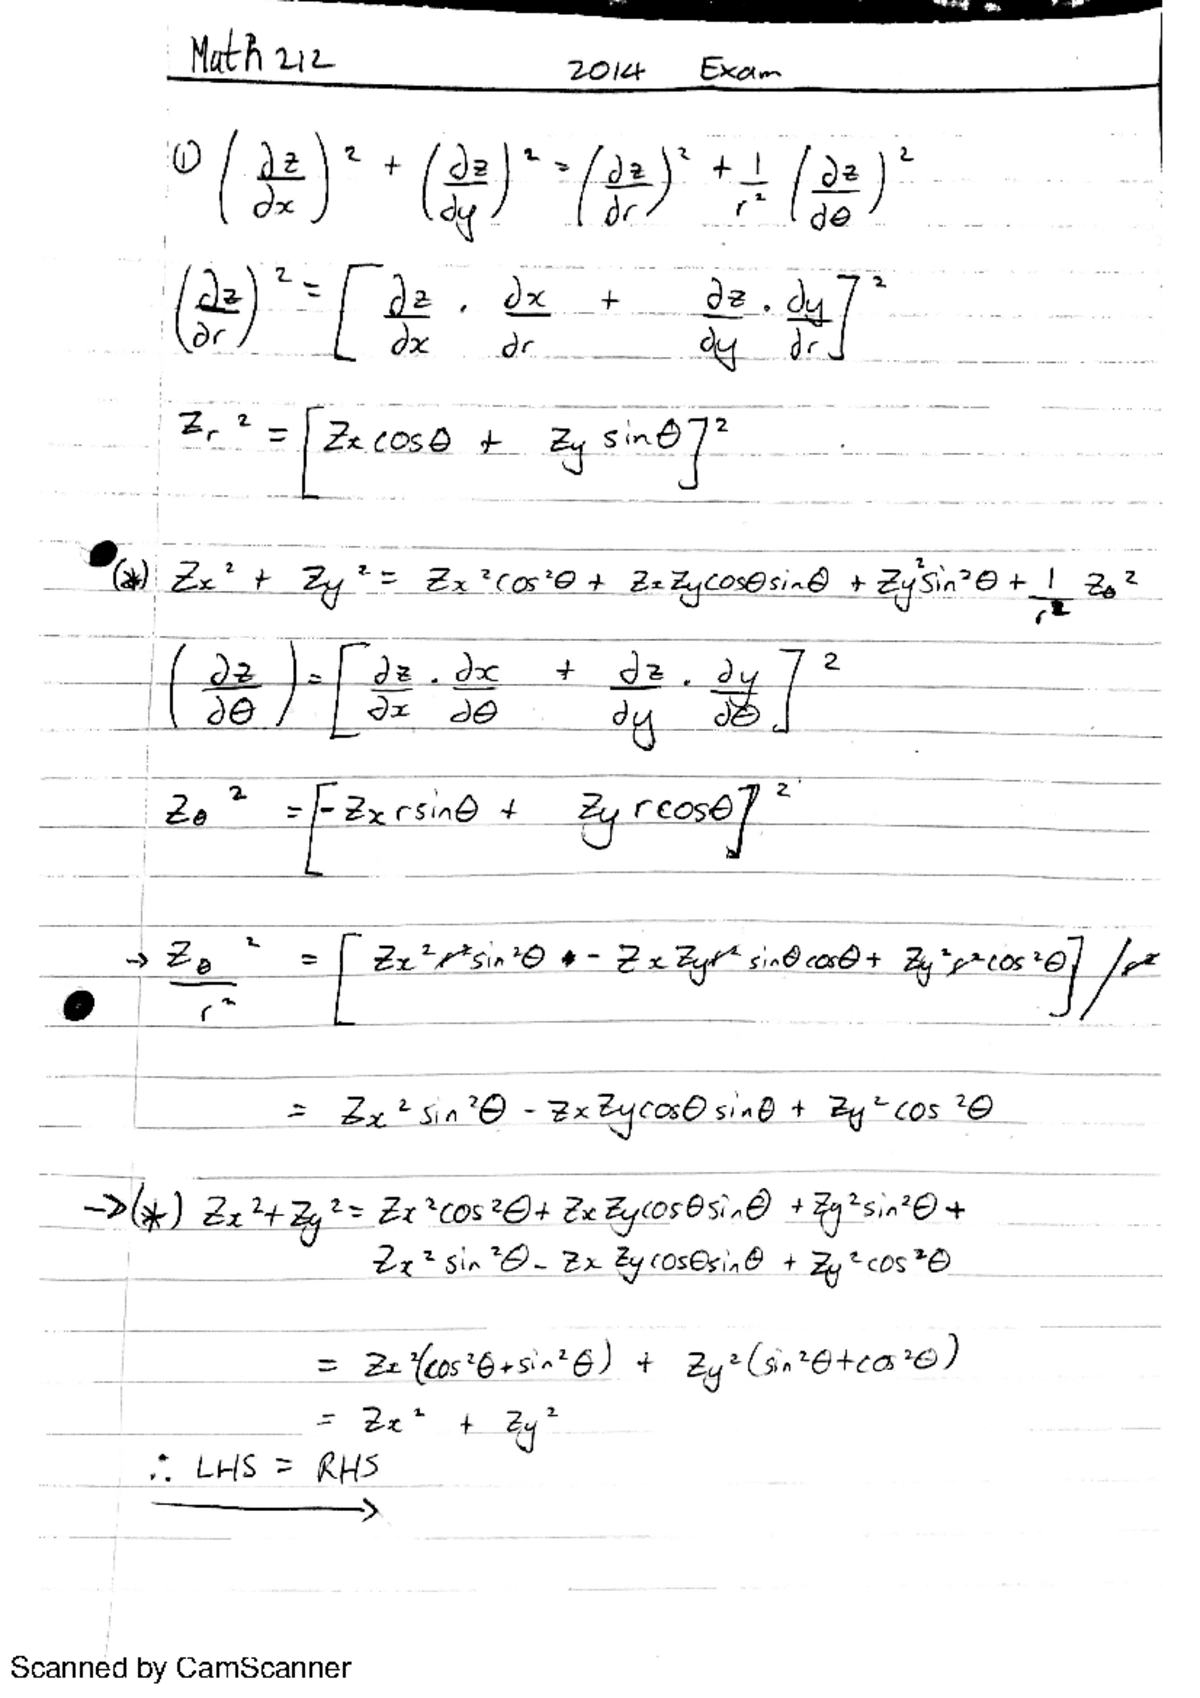 Math 212 2014 Exam
① (∂z/∂x)² + (∂z/∂y)² = (∂z/∂r)² + 1/r² (∂z/∂θ)²
(∂z/∂r)² = [∂z/∂x · ∂x/∂r + ∂z/∂y · ∂y/∂r]²
Zr² = [Zx cosθ + Zy sinθ]²
(*) Zx² + Zy² = Zx²cos²θ + ZxZycosθsinθ + Zy²sin²θ + 1/r² Zθ²
(∂z/∂θ) = [∂z/∂x · ∂x/∂θ + ∂z/∂y · ∂y/∂θ]²
Zθ² = [-Zx rsinθ + Zy rcosθ]²
→ Zθ²/r² = [Zx²r²sin²θ - ZxZyr² sinθcosθ + Zy²r²cos²θ] / r²
= Zx²sin²θ - ZxZycosθsinθ + Zy²cos²θ
→(*) Zx²+Zy² = Zx²cos²θ + ZxZycosθsinθ + Zy²sin²θ +
Zx²sin²θ - ZxZycosθsinθ + Zy²cos²θ
= Zx²(cos²θ+sin²θ) + Zy²(sin²θ+cos²θ)
= Zx² + Zy²
∴ LHS = RHS
Scanned by CamScanner